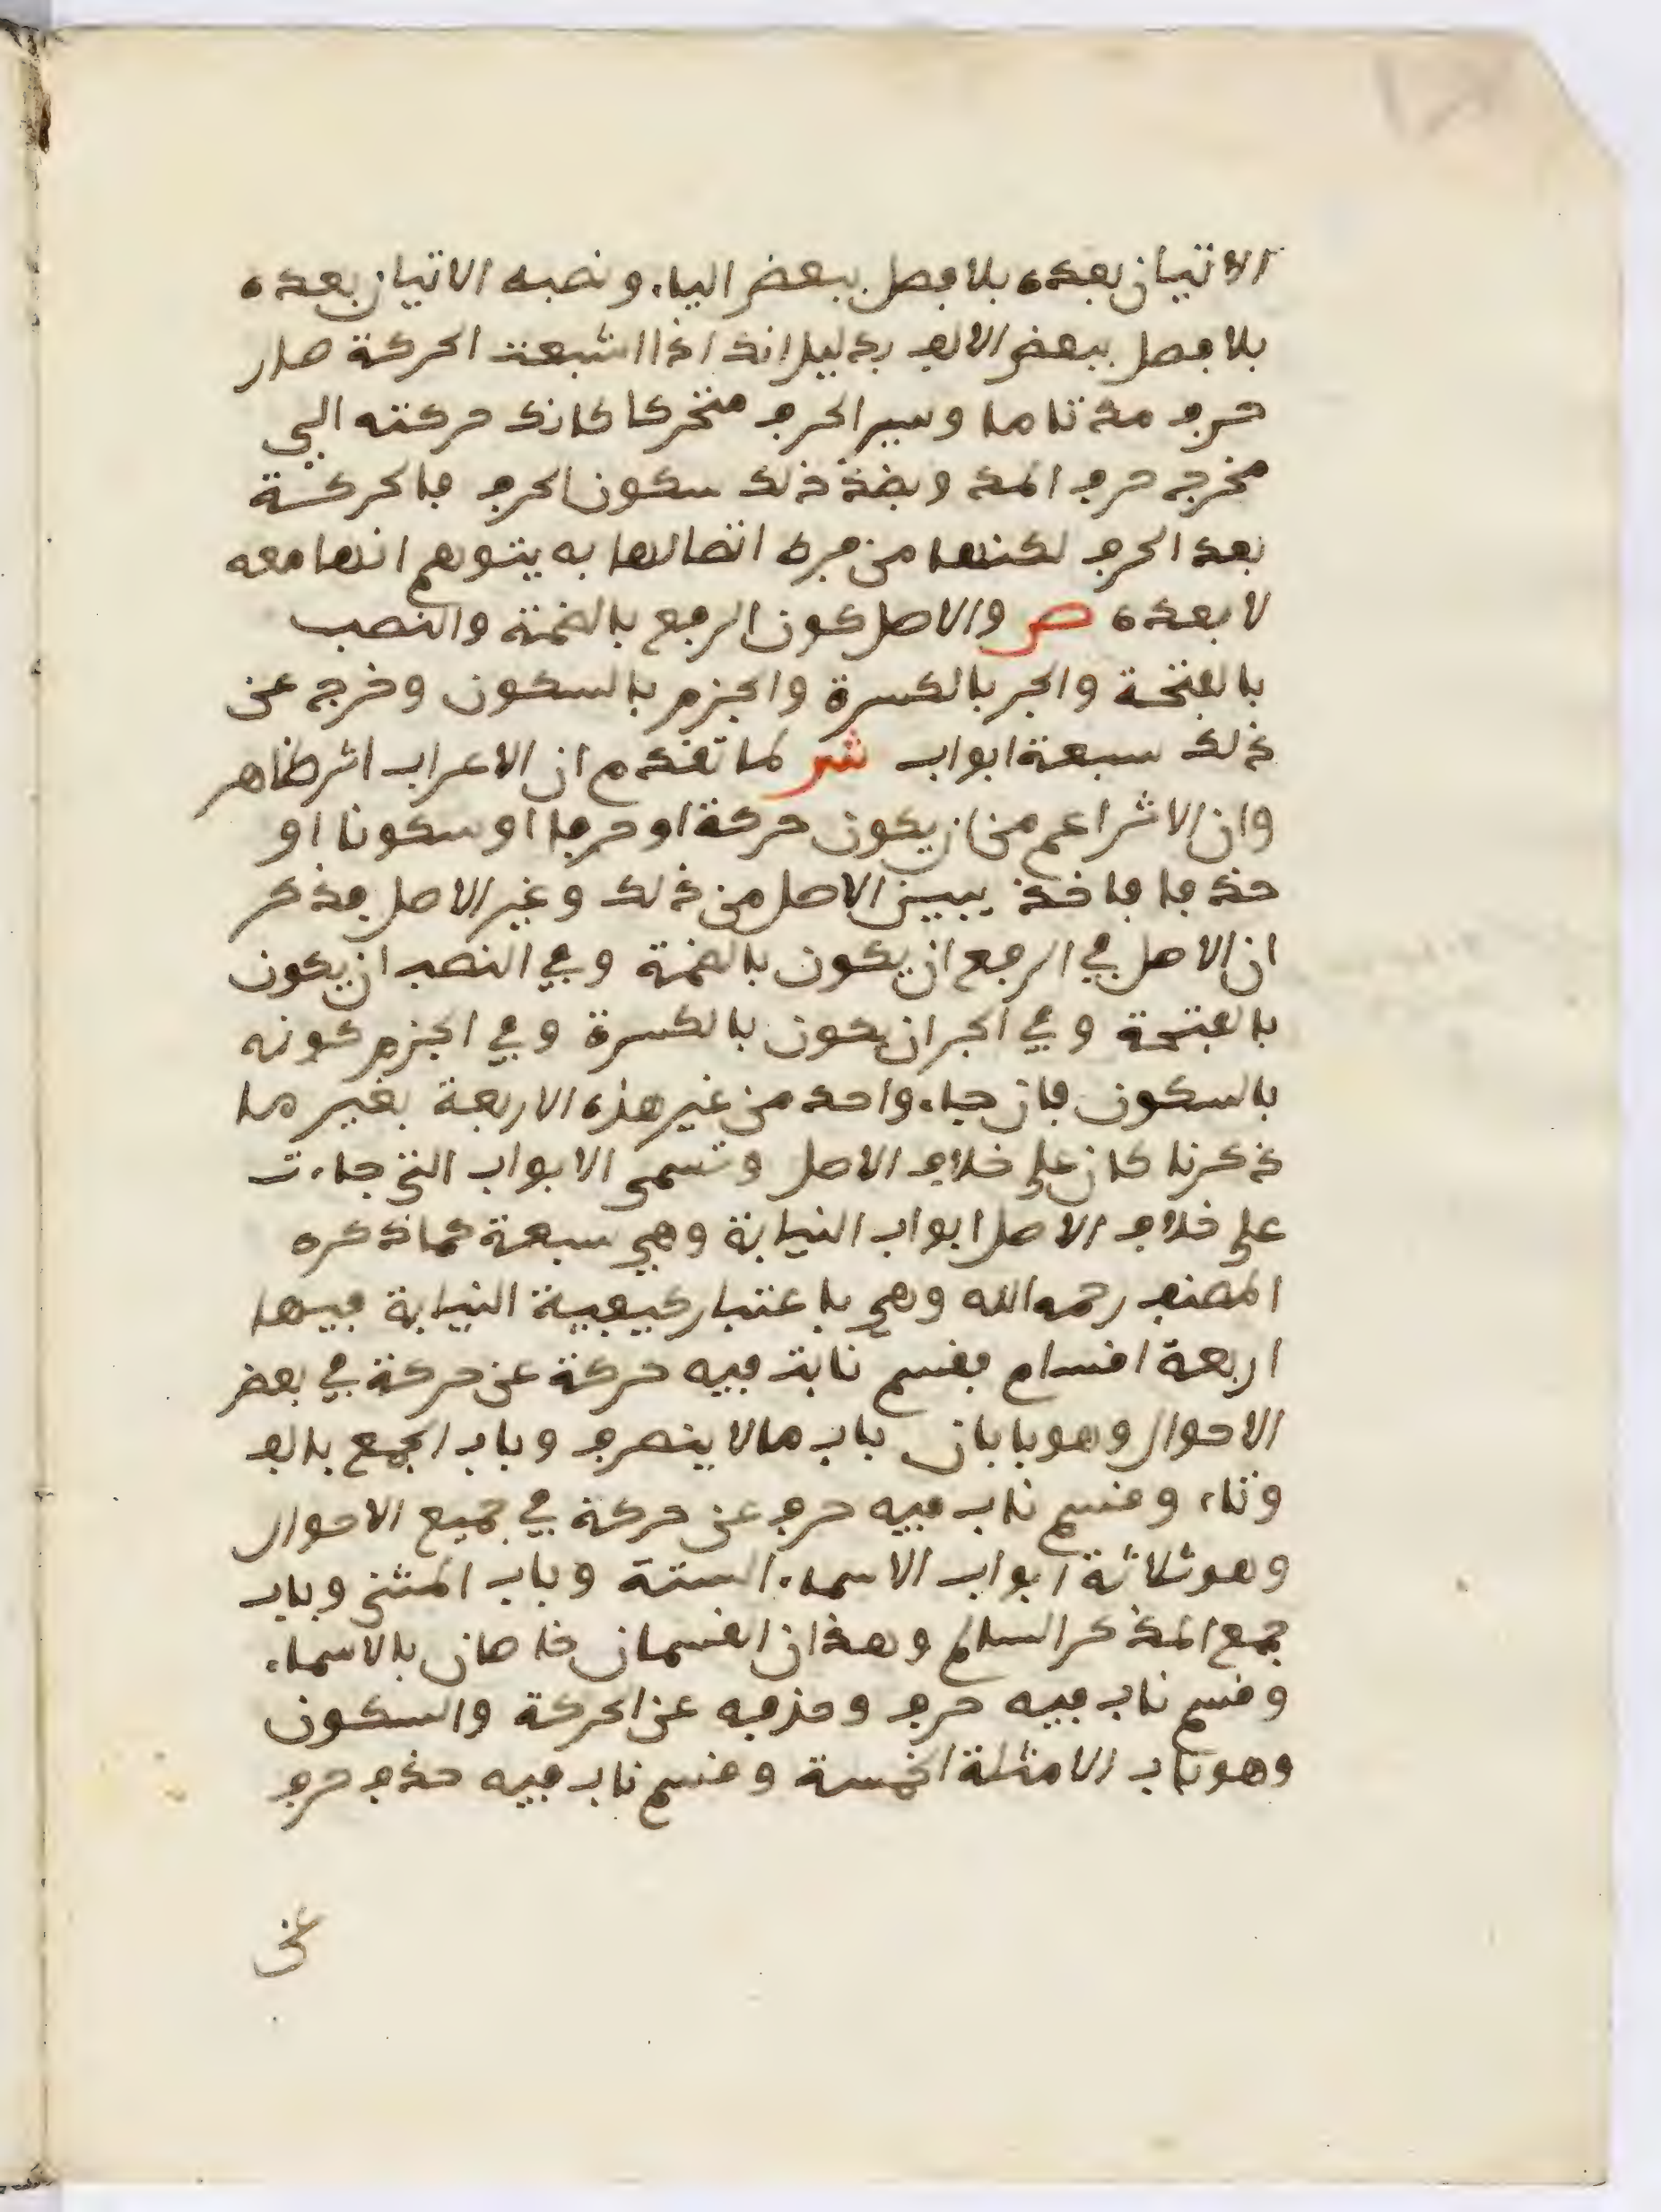 الاتيان بعده بلا فصل ببعض الياء ونصبه الاتيان بعده
بلا فصل ببعض الالف بدليل انك اذا اشبعت الحركة صار
حرف مد تاما وسير الحرف متحركا كانك حركته الى
مخرج حرف المد وبضد ذلك سكون الحرف فالحركة
بعد الحرف لكنها من فرط اتصالها به يتوهم انها معه
لا بعده ص والاصل كون الرفع بالضمة والنصب
بالفتحة والجر بالكسرة والجزم بالسكون وخرج عن
ذلك سبعة ابواب ش لما تقدم ان الاعراب اثر ظاهر
وان الاثر اعم من ان يكون حركة او حرفا او سكونا او
حذفا فاخذ يبين الاصل من ذلك وغير الاصل فذكر
ان الاصل في الرفع ان يكون بالضمة وفي النصب ان يكون
بالفتحة وفي الجر ان يكون بالكسرة وفي الجزم كونه
بالسكون فان جاء واحد من غير هذه الاربعة بغير ما
ذكرنا كان على خلاف الاصل وتسمى الابواب التي جاءت
على خلاف الاصل ابواب النيابة وهي سبعة كما ذكره
المصنف رحمه الله وهي باعتبار كيفية النيابة فيها
اربعة اقسام فقسم نابت فيه حركة عن حركة في بعض
الاحوال وهو بابان باب ما لا ينصرف وباب الجمع بالف
وتاء وقسم ناب فيه حرف عن حركة في جميع الاحوال
وهو ثلاثة ابواب الاسماء الستة وباب المثنى وباب
جمع المذكر السلم وهذان القسمان خاصان بالاسماء
وقسم ناب فيه حرف وحذفه عن الحركة والسكون
وهو باب الامثلة الخمسة وقسم ناب فيه حذف حرف
عن